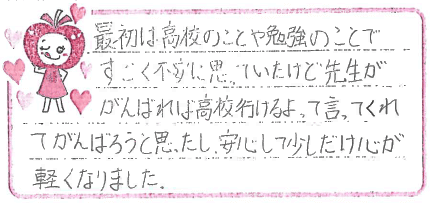 最初は高校のことや勉強のことで
すごく不安に思っていたけど先生が
がんばれば高校行けるよって言ってくれ
てがんばろうと思ったし、安心して少しだけ心が
軽くなりました。